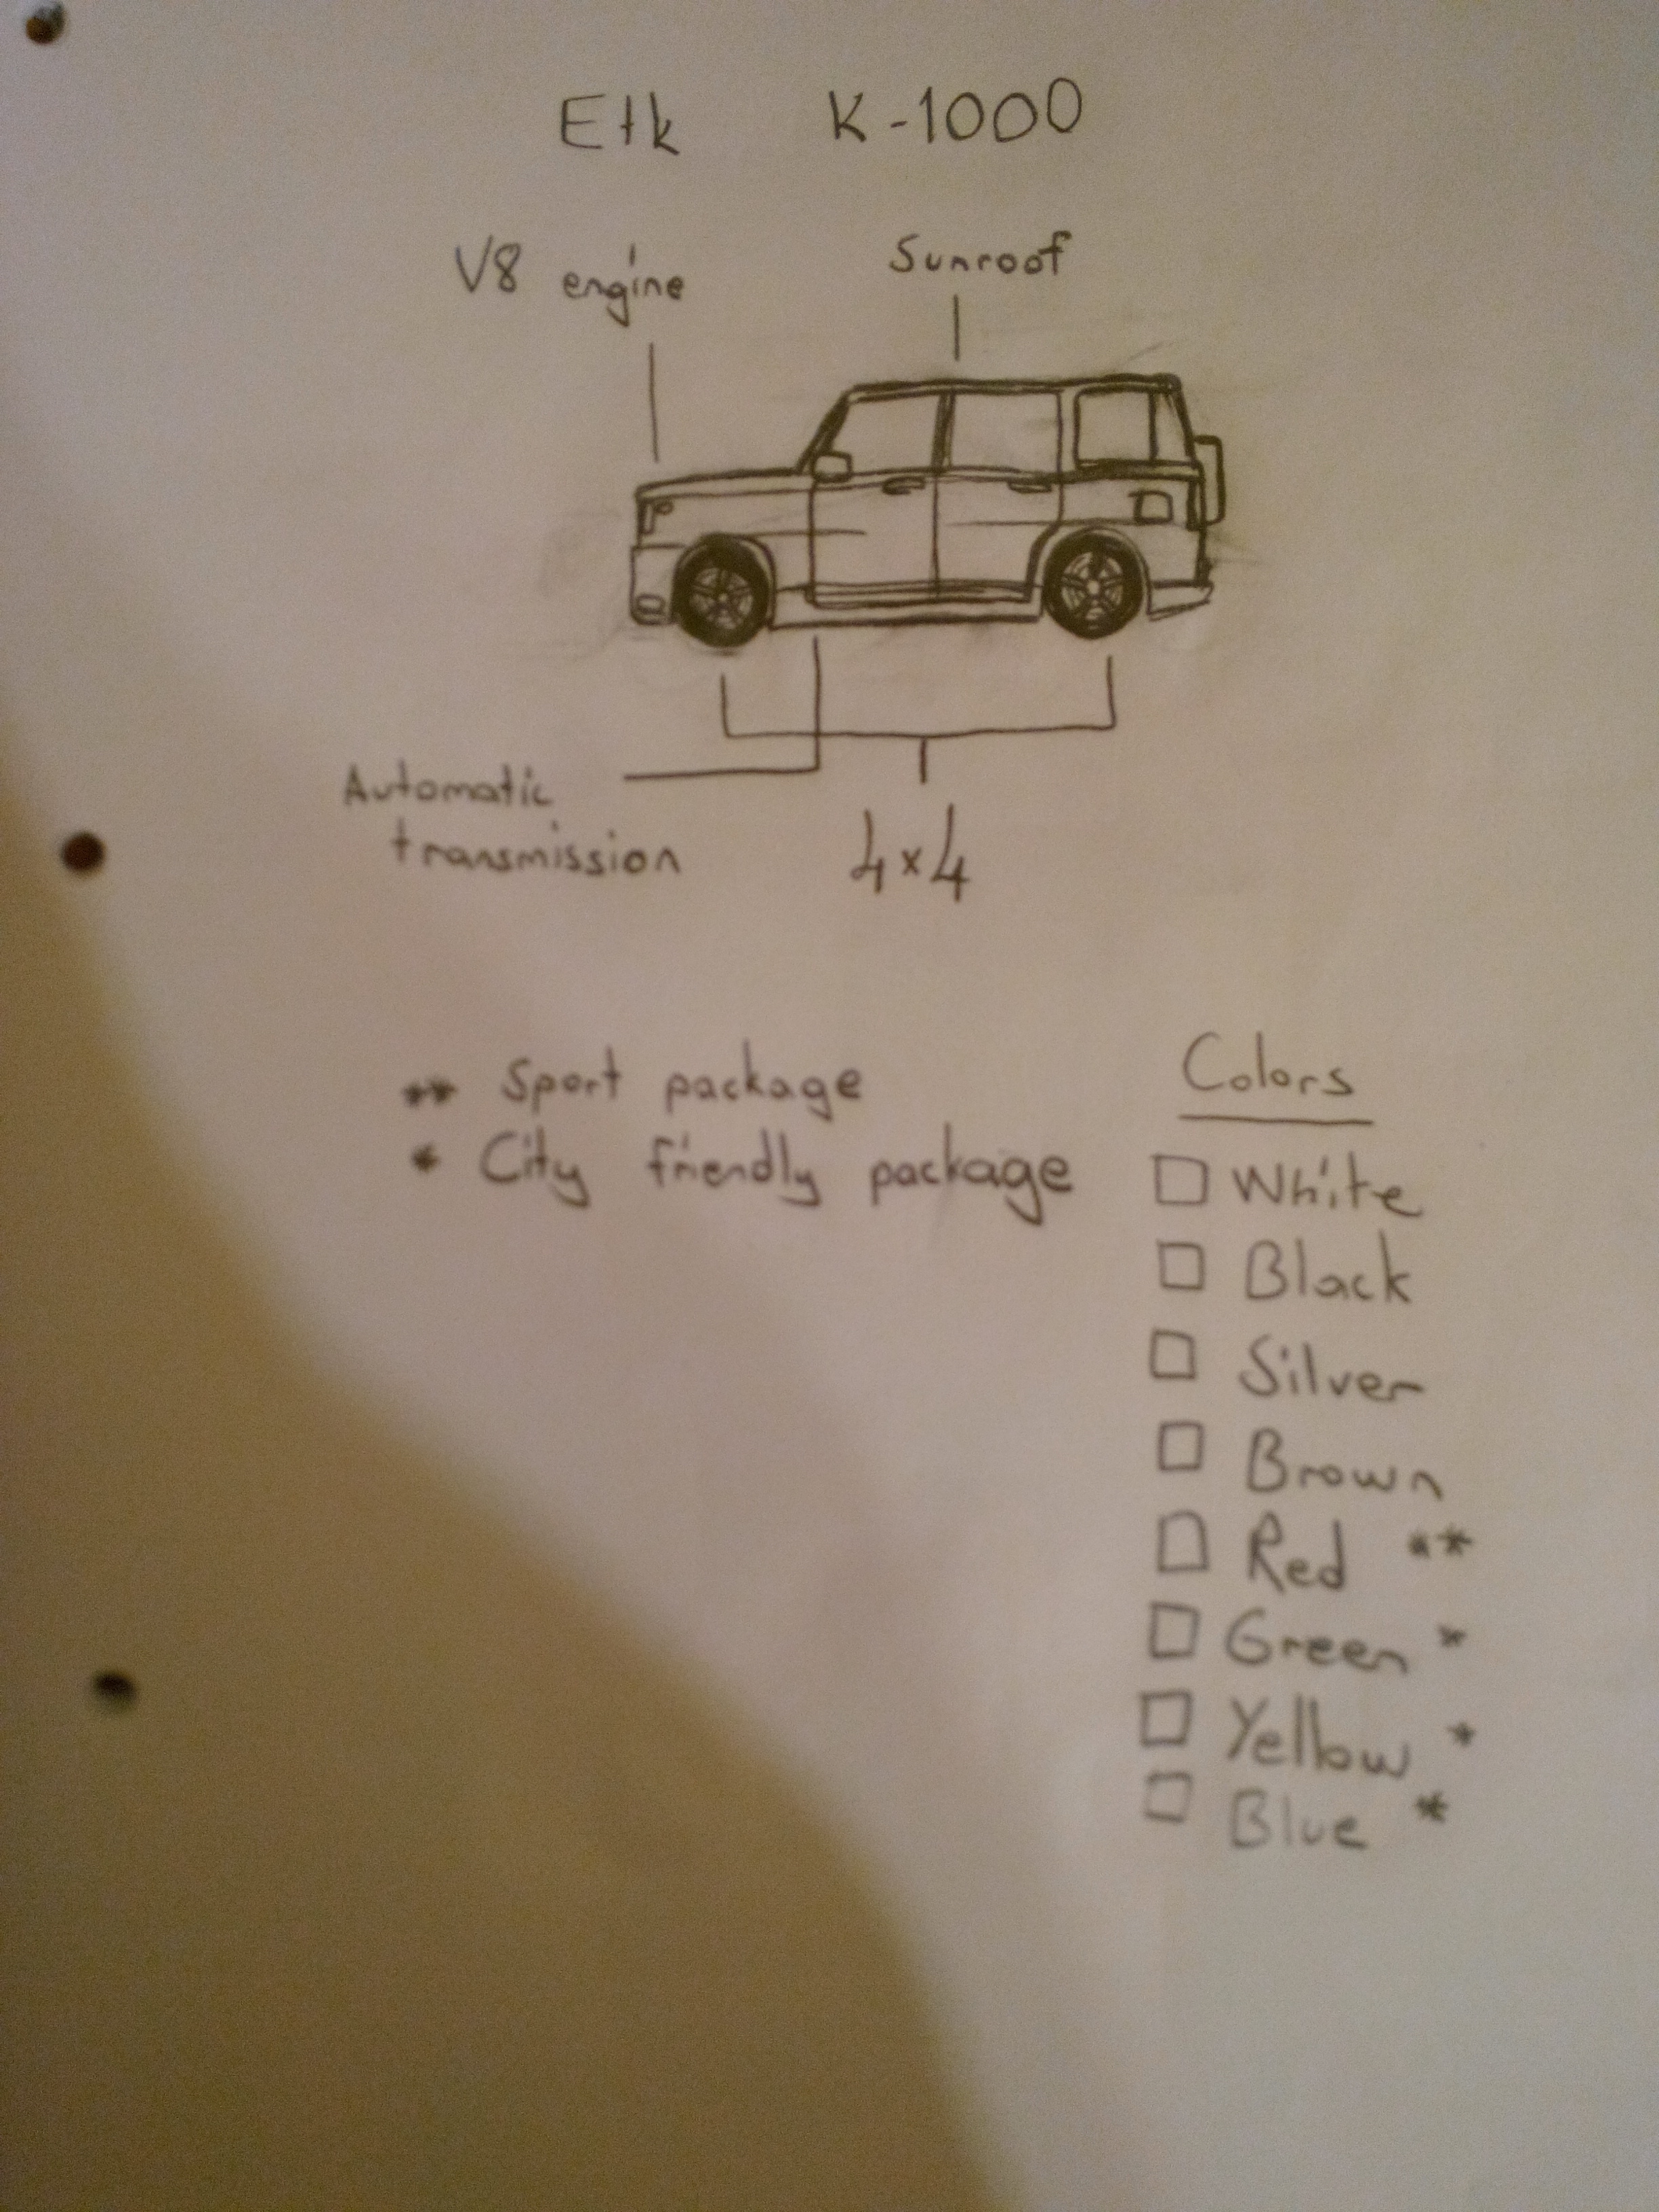 Etk K-1000
V8 engine
Sunroof
Automatic
transmission
4x4
** Sport package
* City friendly package
Colors
White
Black
Silver
Brown
Red **
Green *
Yellow *
Blue *